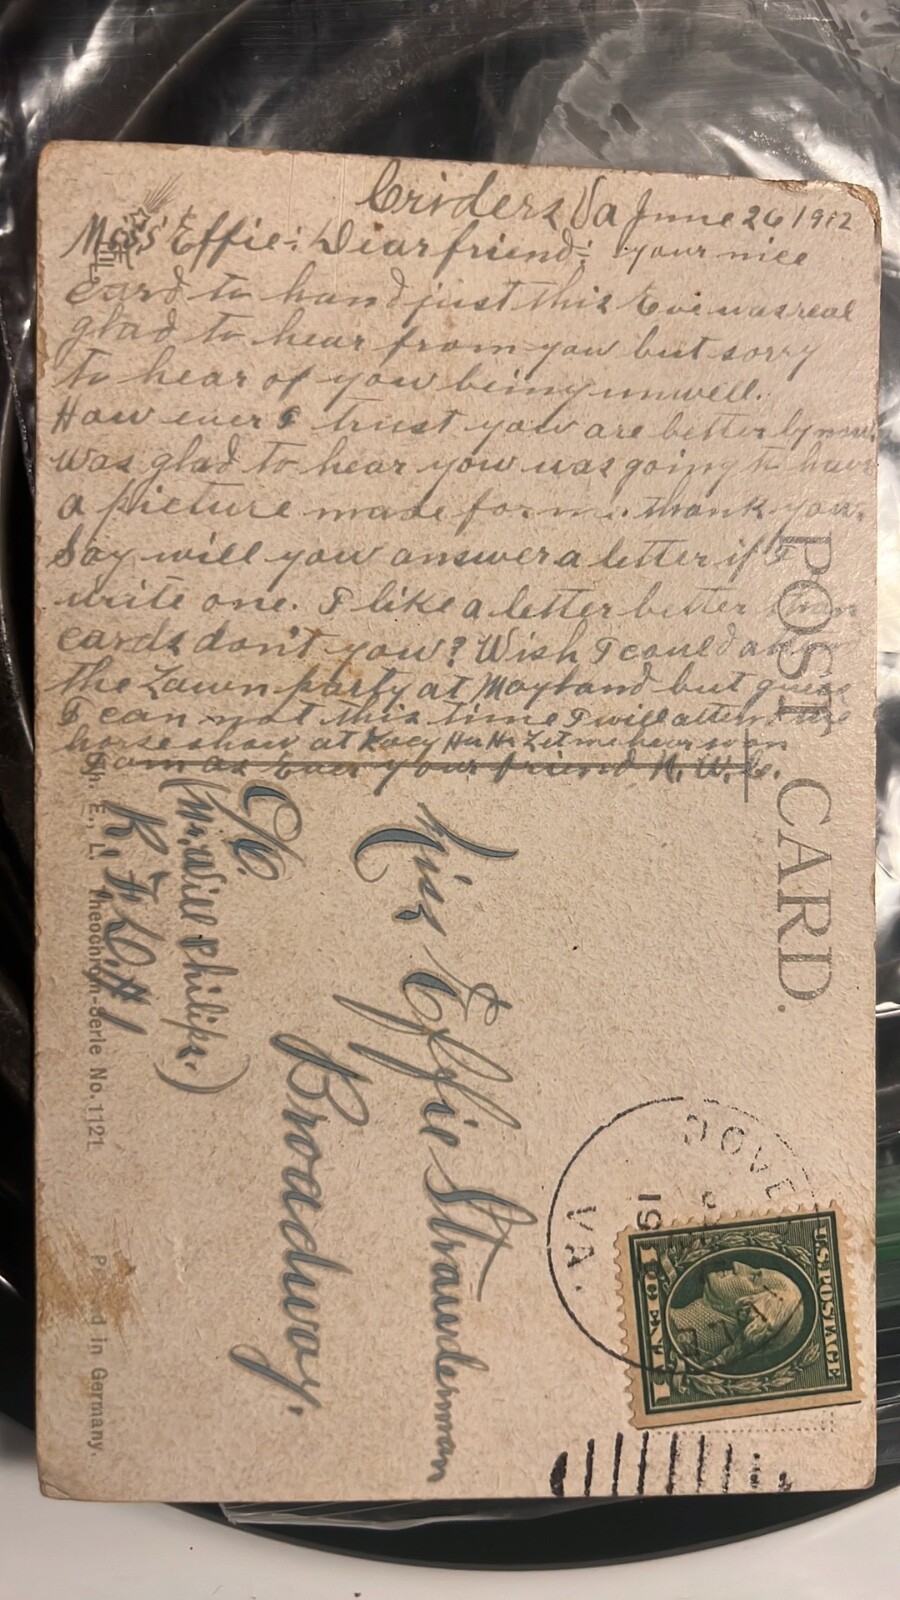 Criders Va June 26 1912
Miss Effie: Dear friend: your nice
card to hand just this Eve was real
glad to hear from you but sorry
to hear of you being unwell.
How ever I trust you are better by now
was glad to hear you was going to have
a picture made for me. thank you.
Say will you answer a letter if I
write one. I like a letter better than
cards don't you? Wish I could
the Lawn party at Mayland but guess
I can not this time I will attend
horse show at Let me hear soon
from as Ever your friend
POST CARD.
Miss Effie Strawderman
Broadway,
C/o.
(Mr. Will Philips.)
R.F.D. # 1
E., L. Theochrom-Serie No. 1121
Printed in Germany.
DOVE
19
VA.
U.S. POSTAGE
1 CENT 1